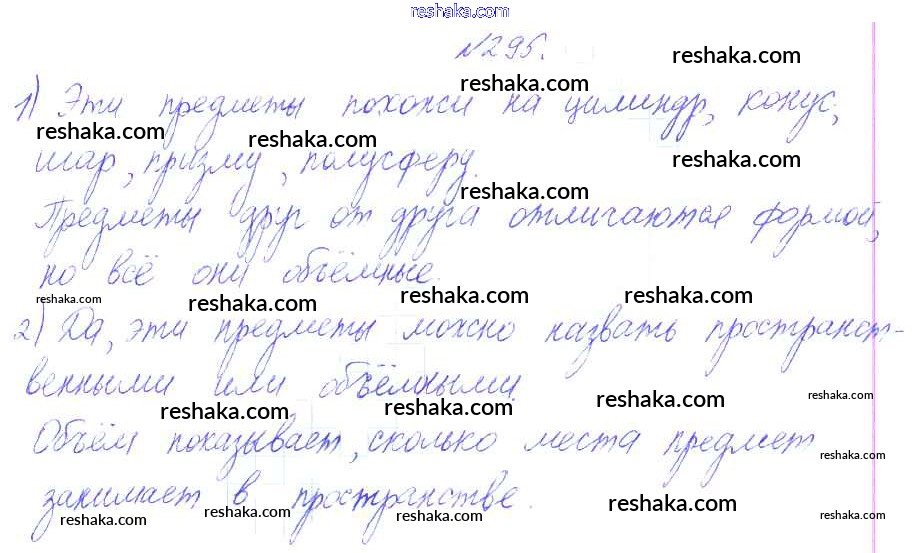 reshaka.com
№295.
reshaka.com
reshaka.com
1) Эти предметы похожи на цилиндр, конус,
reshaka.com
reshaka.com
reshaka.com
шар, призму, полусферу.
reshaka.com
Предметы друг от друга отличаются формой,
но всё они объёмные.
reshaka.com
reshaka.com
reshaka.com
reshaka.com
2) Да, эти предметы можно назвать пространст-
венными или объёмными.
reshaka.com
reshaka.com
reshaka.com
reshaka.com
Объём показывает, сколько места предмет
reshaka.com
занимает в пространстве.
reshaka.com
reshaka.com
reshaka.com
reshaka.com
reshaka.com